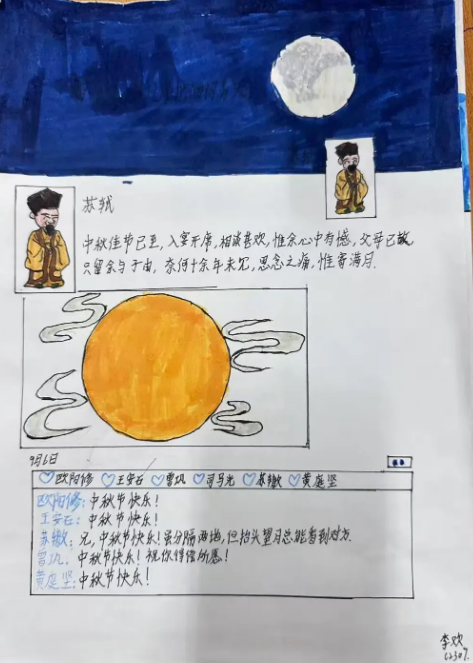 苏轼
中秋佳节已至,入宴开席,相谈甚欢,惟余心中有憾,父母已故
只留余与子由,奈何十余年未见,思念之痛,惟寄满月.
9月6日
欧阳修 王安石 曾巩 司马光 苏辙 黄庭坚
欧阳修:中秋节快乐!
王安石:中秋节快乐!
苏辙:兄,中秋节快乐!虽分隔两地,但抬头望月总能看到对方.
曾巩:中秋节快乐!祝你得偿所愿!
黄庭坚:中秋节快乐!
李欢